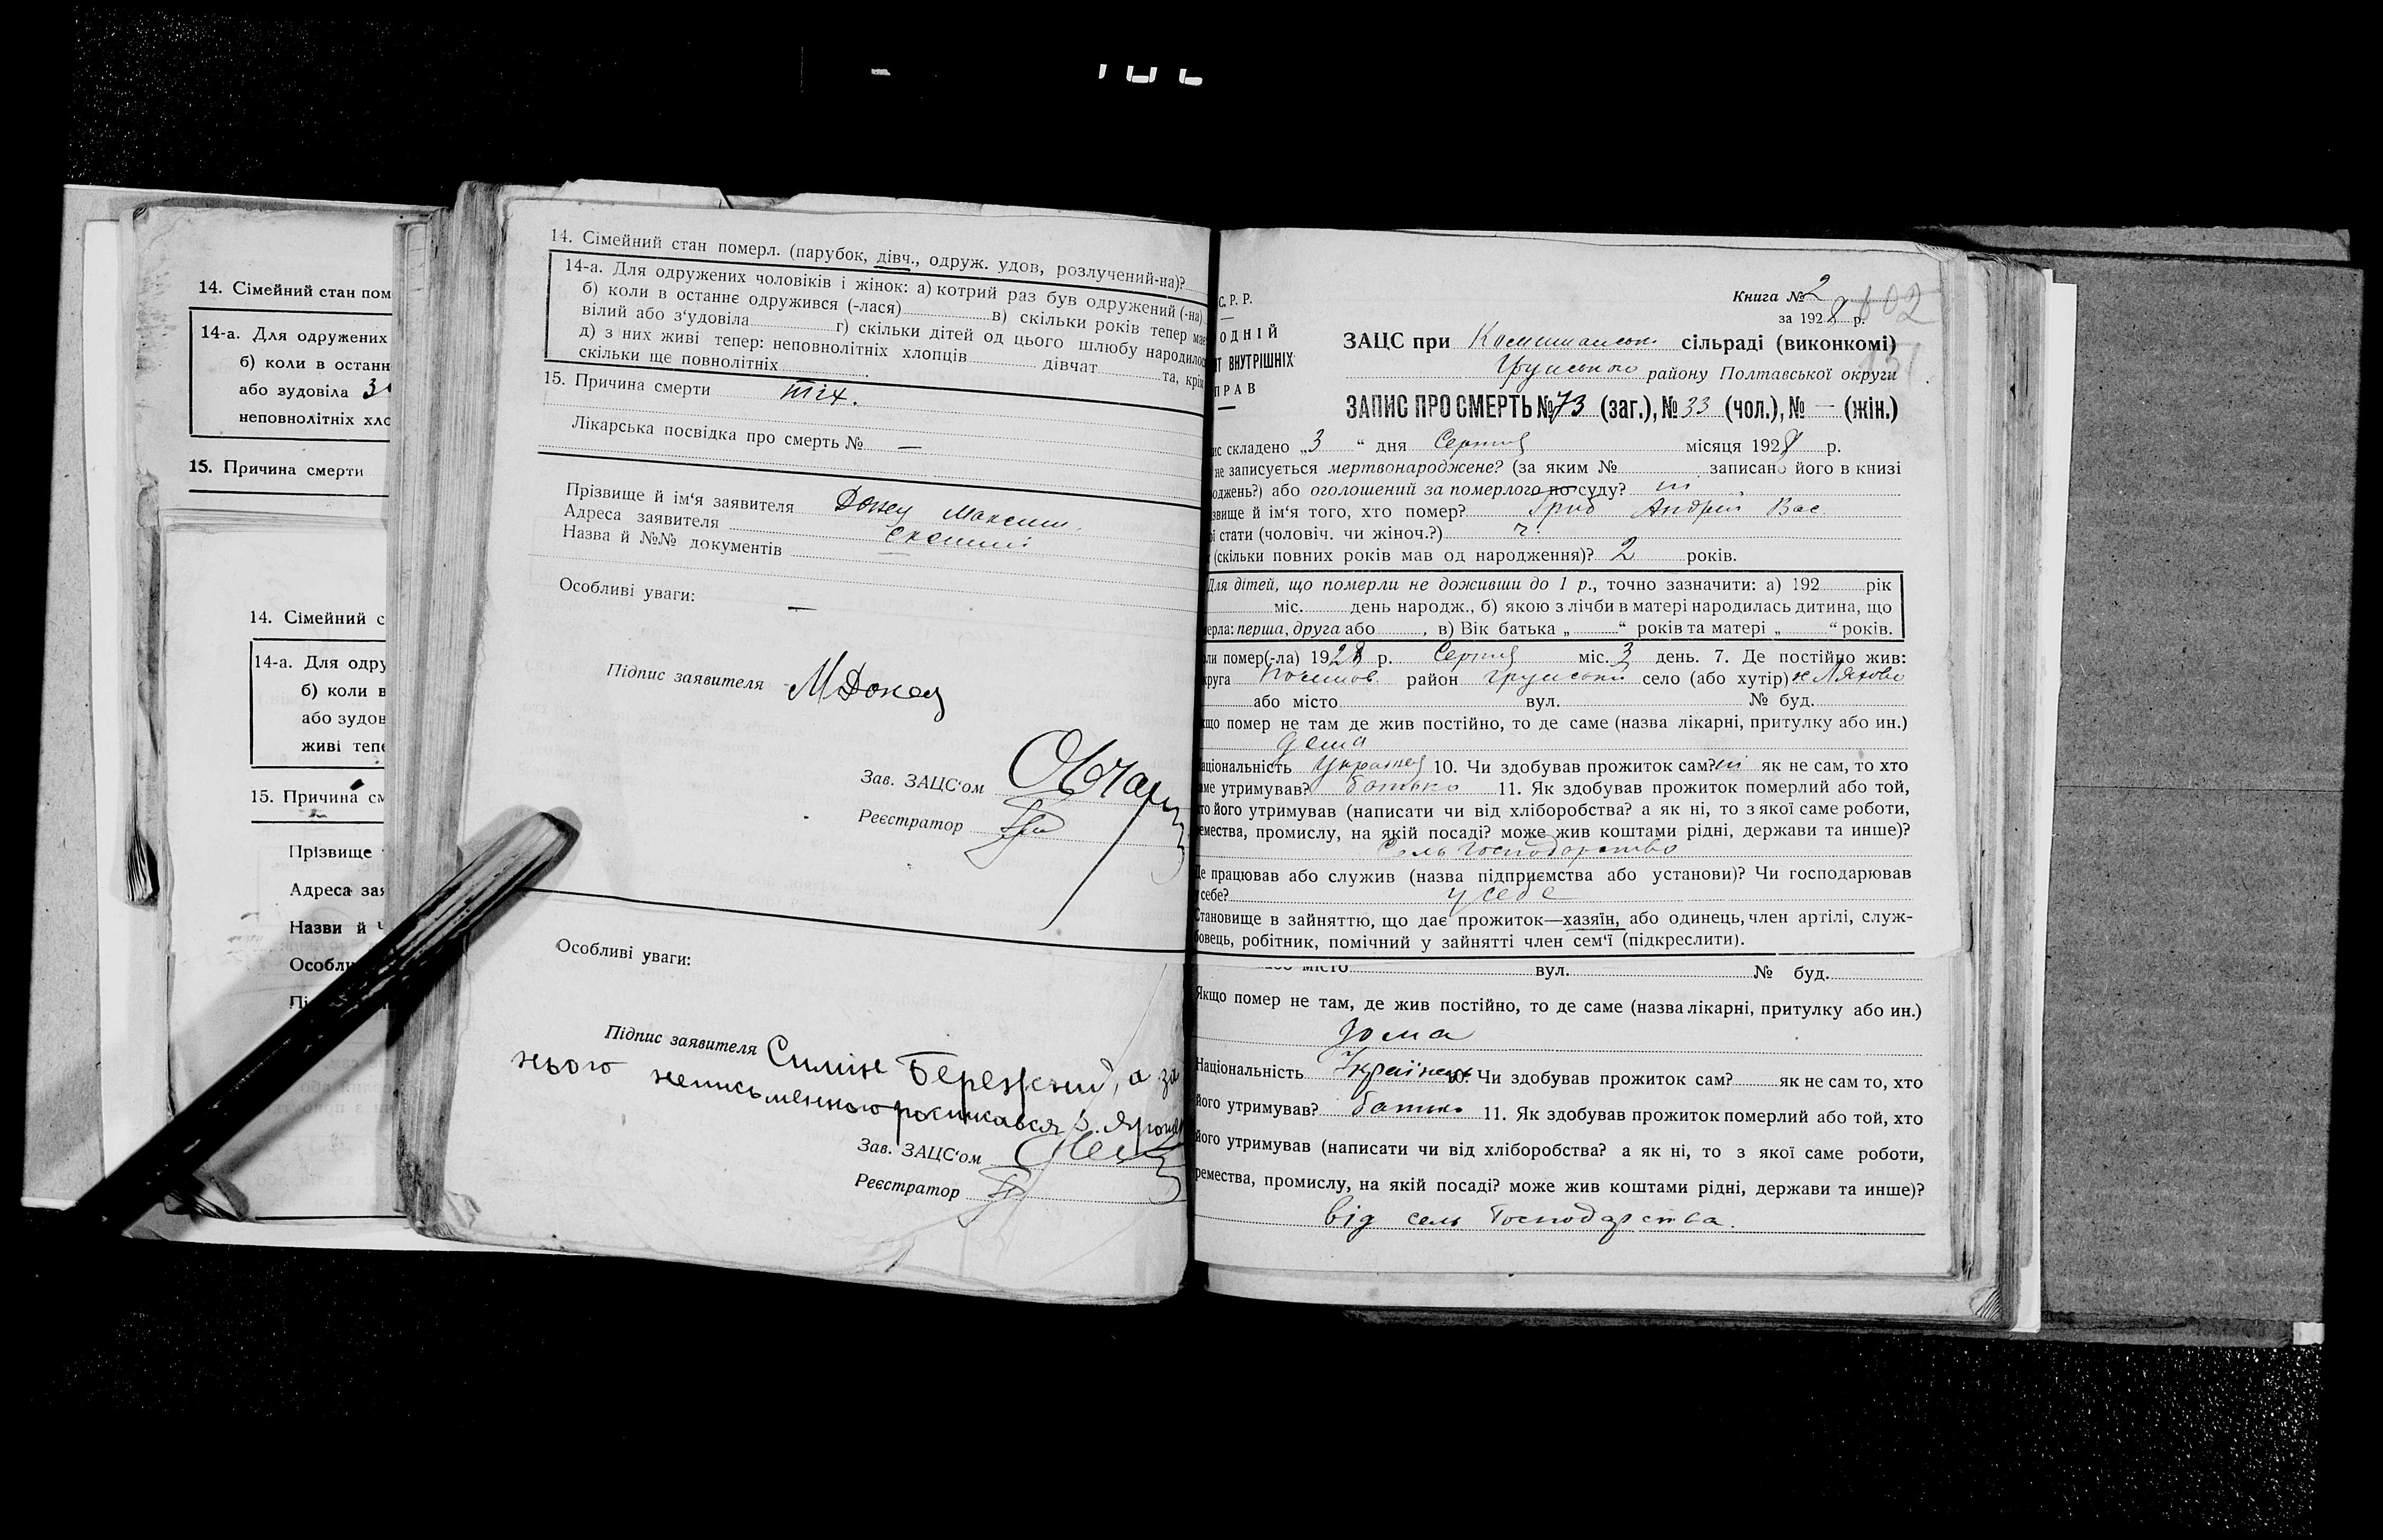 14. Сімейний стан пом
14-а. Для одружених
б) коли в останн
або зудовіла
неповнолітніх хло
15. Причина смерти
14. Сімейний с
14-а. Для одру
б) коли в
або зудов
живі тепе
15. Причина см
Прізвище
Адреса зая
Назви й Ч
Особли
Пі
14. Сімейний стан померл. (парубок, дівч., одруж. удов, розлучений-на)?
14-а. Для одружених чоловіків і жінок: а) котрий раз був одружений (-на)
б) коли в останнє одружився (-лася) в) скільки років тепер має
вілий або з‘удовіла г) скільки дітей од цього шлюбу народилос
д) з них живі тепер: неповнолітніх хлопців дівчат та, крім
скільки ще повнолітніх .
15. Причина смерти
Лікарська посвідка про смерть № —
Прізвище й ім‘я заявителя Донец Максим.
Адреса заявителя
Назва й №№ документів
Особливі уваги: —
Підпис заявителя МДонец
Зав. ЗАЦС‘ом Овчар
Реєстратор
Особливі уваги:
Підпис заявителя Симон Бережний, а за
нього неписьменного росписався
Зав. ЗАЦС‘ом
Реєстратор
С.Р.Р.
ОДНІЙ
Т ВНУТРІШНІХ
ПРАВ
Книга № 2
за 1928 р.
602
ЗАЦС при сільраді (виконкомі)
району Полтавської округи
ЗАПИС ПРО СМЕРТЬ № 73 (заг.), № 33 (чол.), № — (жін.)
ис складено „3“ дня Серпня місяця 1928 р.
не записується мертвонароджене? (за яким № записано його в книзі
оджень?) або оголошений за померлого по суду? ні
звище й ім‘я того, хто помер? Гриб Андрій Вас.
ї стати (чоловіч. чи жіноч.?) ч.
(скільки повних років мав од народження)? 2 років.
Для дітей, що померли не доживши до 1 р., точно зазначити: а) 192 рік
міс. день народж., б) якою з лічби в матері народилась дитина, що
мерла: перша, друга або , в) Вік батька „ “ років та матері „ “ років.
ли помер(-ла) 1928 р. Серпня міс. 3 день. 7. Де постійно жив:
круга район село (або хутір)
або місто вул. № буд.
кщо помер не там де жив постійно, то де саме (назва лікарні, притулку або ин.)
дома
аціональність Українец 10. Чи здобував прожиток сам? ні як не сам, то хто
аме утримував? батько 11. Як здобував прожиток померлий або той,
то його утримував (написати чи від хліборобства? а як ні, то з якої саме роботи,
емества, промислу, на якій посаді? може жив коштами рідні, держави та инше)?
Сель Господарство
Де працював або служив (назва підприємства або установи)? Чи господарював
себе? у себе
Становище в зайняттю, що дає прожиток—хазяїн, або одинець, член артілі, служ-
бовець, робітник, помічний у зайнятті член сем‘ї (підкреслити).
або місто вул. № буд.
Якщо помер не там, де жив постійно, то де саме (назва лікарні, притулку або ин.)
дома
Національність Українець 10. Чи здобував прожиток сам? як не сам то, хто
його утримував? батько 11. Як здобував прожиток померлий або той, хто
його утримував (написати чи від хліборобства? а як ні, то з якої саме роботи,
ремества, промислу, на якій посаді? може жив коштами рідні, держави та инше)?
від сель Господарства.